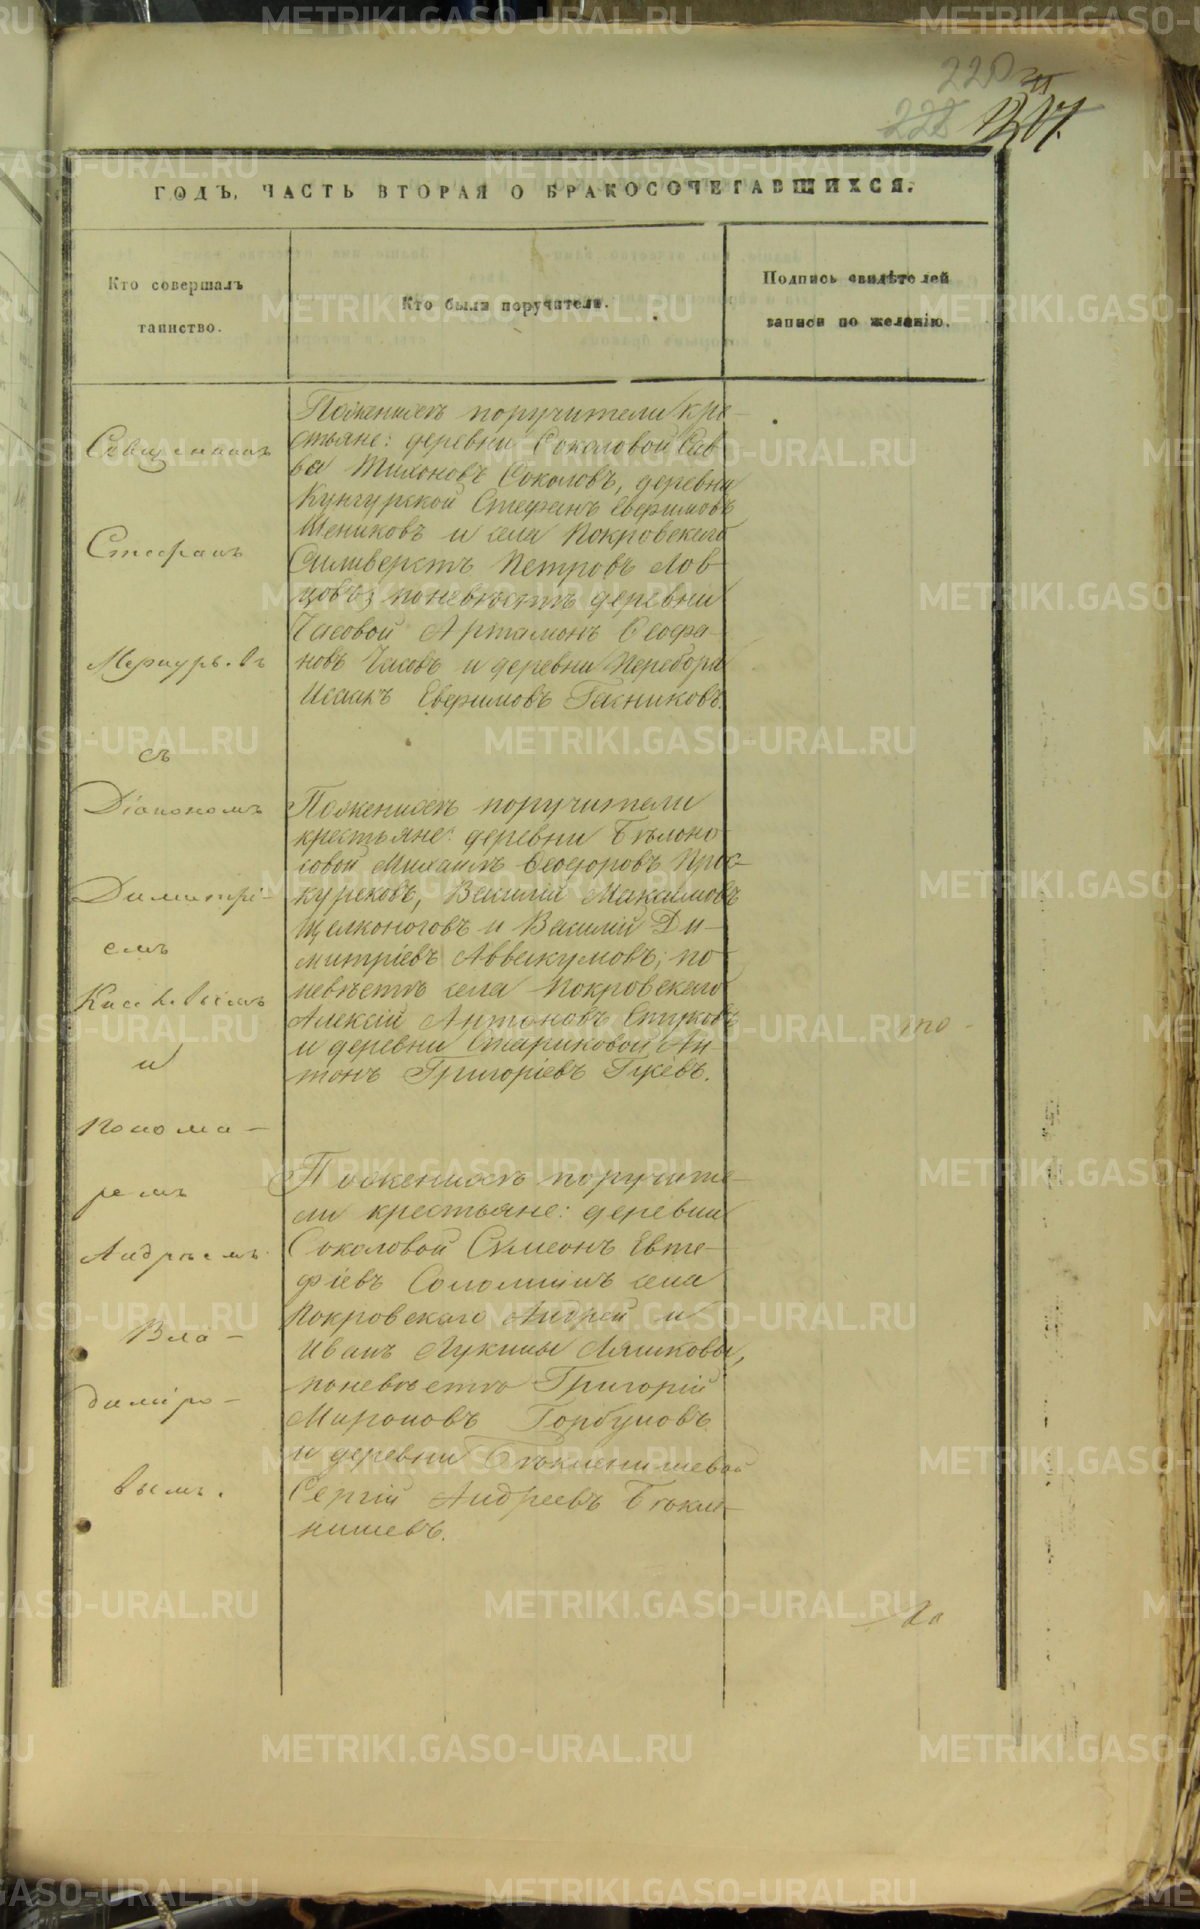 220
222
ГОДЪ, ЧАСТЬ ВТОРАЯ О БРАКОСОЧЕТАВШИХСЯ.
Кто совершалъ
таинство.
Кто были поручители.
Подпись свидѣтелей
записи по желанію.
Священникъ
Стефанъ
съ
Діакономъ
Димитрі-
емъ
и
понома-
ремъ
Андреемъ
Вла-
диміро-
вымъ.
По женихѣ поручители кре-
стьяне: деревни Соколовой Сав-
ва Тихоновъ Соколовъ, деревни
Кунгурской Стефанъ Евфимовъ
и села Покровскаго
Силиверстъ Петровъ Лов-
цовъ; по невѣстѣ деревни
Часовой Артамонъ Ѳеофа-
новъ Часовъ и деревни Перебора
Исаакъ Евфимовъ
По женихѣ поручители
крестьяне: деревни Бѣлоно-
совой Михаилъ Ѳеодоровъ Прос-
куряковъ, Василій Максимовъ
Щелконоговъ и Василій Ди-
митріевъ Аввакумовъ; по
невѣстѣ села Покровскаго
Алексій Антоновъ
и деревни Стариковой Ан-
тонъ Григоріевъ Гусевъ.
По женихѣ поручите-
ли крестьяне: деревни
Соколовой Симеонъ Евте-
фіевъ Соломеинъ села
Покровскаго Андрей и
Иванъ Лукины Ляшковы,
по невѣстѣ Григорій
Мироновъ Горбуновъ
и деревни
Сергій Андреевъ
METRIKI.GASO-URAL.RU